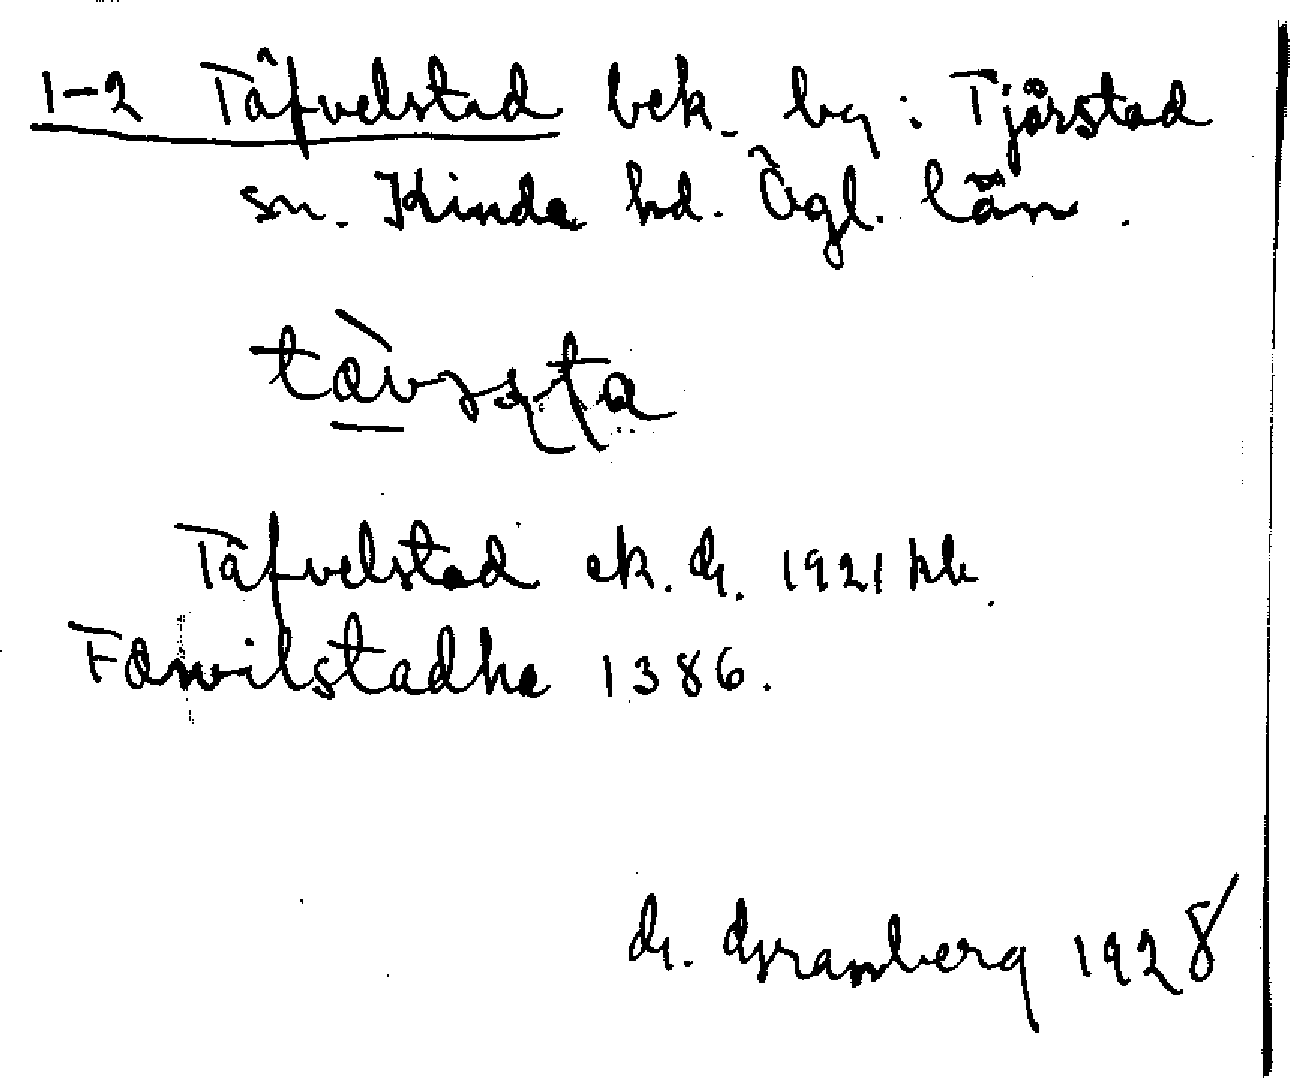 1-2 Täfvelstad bek. by: Tjärstad
sn. Kinda hd. Ögl. län.
Täfvelstad ek. G. 1921 kb.
Tæwilstadhe 1386.
G. Granberg 1928